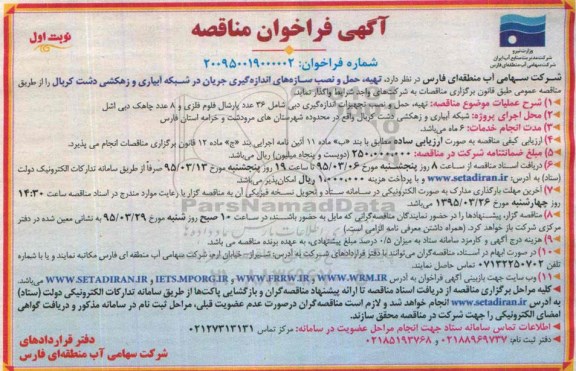 آگهی فراخوان مناقصه
نوبت اول
وزارت نیرو
شرکت مدیریت منابع آب ایران
شرکت سهامی آب منطقه‌ای فارس
شماره فراخوان: ۲۰۰۹۵۰۰۱۹۰۰۰۰۰۲
شرکت سهامی آب منطقه‌ای فارس در نظر دارد، تهیه، حمل و نصب سازه‌های اندازه‌گیری جریان در شبکه آبیاری و زهکشی دشت کربال را از طریق
مناقصه عمومی طبق قانون برگزاری مناقصات به شرکت‌های واجد شرایط واگذار نماید.
۱- شرح عملیات موضوع مناقصه: تهیه، حمل و نصب تجهیزات اندازه‌گیری دبی شامل ۳۶ عدد پارشال فلوم فلزی و ۸ عدد چاهک دبی اشل
۲- محل اجرای پروژه: شبکه آبیاری و زهکشی دشت کربال واقع در محدوده شهرستان های مرودشت و خرامه استان فارس
۳- مدت انجام خدمات: ۶ ماه می‌باشد.
۴- ارزیابی کیفی مناقصه به صورت ارزیابی ساده مطابق با بند «ب» ماده ۱۱ آئین نامه اجرایی بند «ج» ماده ۱۲ قانون برگزاری مناقصات انجام می پذیرد.
۵- مبلغ ضمانتنامه شرکت در مناقصه: ۲۵۰.۰۰۰.۰۰۰ (دویست و پنجاه میلیون) ریال می‌باشد.
۶- دریافت اسناد مناقصه از ساعت ۸ روز پنجشنبه مورخ ۹۵/۰۳/۰۶ تا ساعت ۱۹ روز پنجشنبه مورخ ۹۵/۰۳/۱۳ صرفاً از طریق سامانه تدارکات الکترونیک دولت
(ستاد) به آدرس: www.setadiran.ir و با پرداخت هزینه ریال امکان‌پذیر می‌باشد.
۷- آخرین مهلت بارگذاری مدارک به صورت الکترونیکی در سامانه ستاد و تحویل نسخه فیزیکی آن به مناقصه گزار با رعایت موارد مندرج در اسناد مناقصه ساعت ۱۴:۳۰
روز چهارشنبه مورخ ۱۳۹۵/۰۳/۲۶ می باشد.
۸- مناقصه گزار، پیشنهادها را در حضور نمایندگان مناقصه‌گرانی که مایل به حضور باشند، در ساعت ۱۰ صبح روز شنبه مورخ ۹۵/۰۳/۲۹ به نشانی معین شده در دفتر
مرکزی شرکت باز خواهد کرد. (همراه داشتن معرفی نامه الزامی است).
۹- هزینه درج آگهی و کارمزد سامانه ستاد به میزان ۰/۵ درصد مبلغ پیشنهادی، به عهده برنده مناقصه می باشد.
۱۰- در صورت ابهام در اسناد، مناقصه‌گران می‌توانند با دفتر قراردادهای شرکت به آدرس: شیراز، خیابان ارم، شرکت سهامی آب منطقه ای فارس مکاتبه نمایند و یا با شماره
تلفن ۰۷۱۳۲۲۵۰۷۰۲ تماس حاصل نمایند.
۱۱- وب سایت جهت بازبینی آگهی فراخوان به آدرس WWW.WRM.IR و WWW.FRRW.IR و IETS.MPORG.IR و WWW.SETADIRAN.IR می‌باشد.
کلیه مراحل برگزاری مناقصه از دریافت اسناد مناقصه تا ارائه پیشنهاد مناقصه‌گران و بازگشایی پاکت‌ها از طریق سامانه تدارکات الکترونیکی دولت (ستاد)
به آدرس www.setadiran.ir انجام خواهد شد و لازم است مناقصه‌گران درصورت عدم عضویت قبلی، مراحل ثبت نام در سامانه مذکور و دریافت گواهی
امضای الکترونیکی را جهت شرکت در مناقصه محقق سازند.
اطلاعات تماس سامانه ستاد جهت انجام مراحل عضویت در سامانه: مرکز تماس ۰۲۱۲۷۳۱۳۱۳۱
دفتر ثبت نام: ۰۲۱۸۸۹۶۹۷۳۷ و ۰۲۱۸۵۱۹۳۷۶۸
دفتر قراردادهای
شرکت سهامی آب منطقه‌ای فارس
ParsNamadData